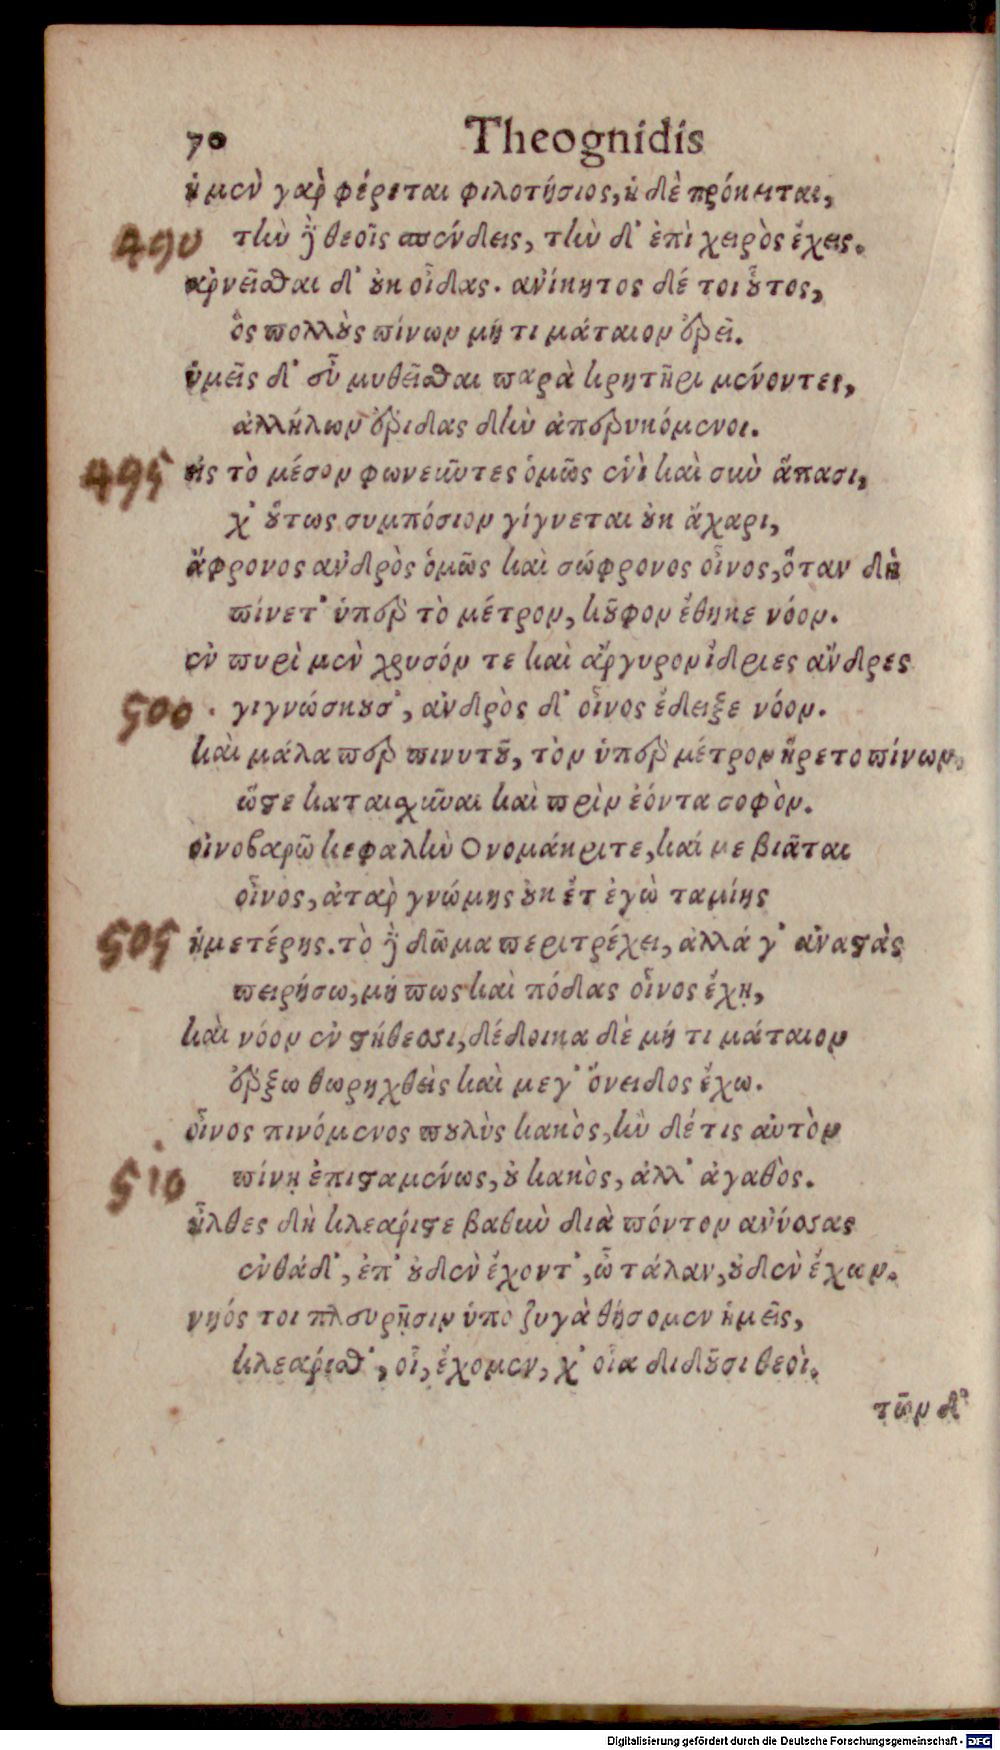 70 Theognidis
ἡ μὲν γὰρ φέρεται φιλοτήσιος, ἡ δὲ πρόκειται,
490 τὴν δὲ θεοῖς σπένδεις, τὴν δ' ἐπὶ χειρὸς ἔχεις.
ἀρνεῖσθαι δ' οὐκ οἶδας. ἀνίκητος δέ τοι οὗτος,
ὃς πολλοὺς πίνων μή τι μάταιον ἐρεῖ.
ὑμεῖς δ' εὖ μυθεῖσθαι παρὰ κρητῆρι μένοντες,
ἀλλήλων ἔριδας δὴν ἀπερυκόμενοι.
495 εἰς τὸ μέσον φωνεῦντες ὁμῶς ἑνὶ καὶ σὺν ἅπασι,
χ' οὕτως συμπόσιον γίγνεται οὐκ ἄχαρι,
ἄφρονος ἀνδρὸς ὁμῶς καὶ σώφρονος οἶνος, ὅταν δὴ
πίνετ' ὑπὲρ τὸ μέτρον, κοῦφον ἔθηκε νόον.
ἐν πυρὶ μὲν χρυσόν τε καὶ ἄργυρον ἴδριες ἄνδρες
500 γιγνώσκουσ', ἀνδρὸς δ' οἶνος ἔδειξε νόον.
καὶ μάλα περ πινυτοῦ, τὸν ὑπὲρ μέτρον ἤρετο πίνων,
ὥστε καταισχῦναι καὶ πρὶν ἐόντα σοφὸν.
οἰνοβαρῶ κεφαλὴν Ονομάκριτε, καί με βιᾶται
οἶνος, ἀτὰρ γνώμης οὐκ ἔτ ἐγὼ ταμίης
505 ἡμετέρης. τὸ δὲ δῶμα περιτρέχει, ἀλλά γ' ἀναστὰς
πειρήσω, μή πως καὶ πόδας οἶνος ἔχῃ,
καὶ νόον ἐν στήθεσι, δέδοικα δὲ μή τι μάταιον
ἔρξω θωρηχθεὶς καὶ μεγ' ὄνειδος ἔχω.
οἶνος πινόμενος πουλὺς κακὸς, ἢν δέ τις αὐτὸν
510 πίνῃ ἐπισταμένως, οὐ κακὸς, ἀλλ' ἀγαθὸς.
ἦλθες δὴ κλεαρίστε βαθὺν διὰ πόντον ἀνύσσας
ἐνθάδ', ἐπ' οὐδὲν ἔχοντ', ὦ τάλαν, οὐδὲν ἔχων.
νηός τοι πλευρῇσιν ὑπὸ ζυγὰ θήσομεν ἡμεῖς,
κλεαρίσθ', οἷ, ἔχομεν, χ' οἷα διδοῦσι θεοὶ.
τῶν δ'
Digitalisierung gefördert durch die Deutsche Forschungsgemeinschaft - DFG